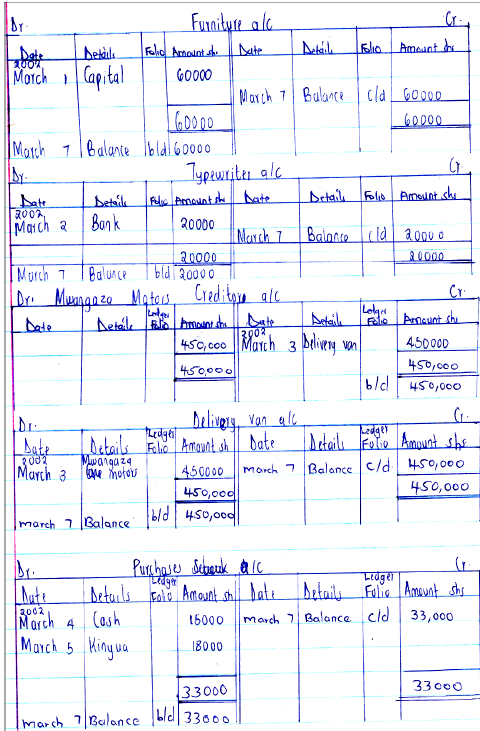 Dr. Furniture a/c Cr.
Date Details Folio Amount sh Date Details Folio Amount shs
2002
March 1 Capital 60000
March 7 Balance c/d 60000
60000 60000
March 7 Balance b/d 60000
Dr. Typewriter a/c Cr.
Date Details Folio Amount shs Date Details Folio Amount shs
2002
March 2 Bank 20000
March 7 Balance c/d 20000
20000 20000
March 7 Balance b/d 20000
Dr. Mwangaza Motors Creditors a/c Cr.
Date Details Ledger Folio Amount shs Date Details Ledger Folio Amount shs
2002
450,000 March 3 Delivery van 450000
450,000 450,000
b/d 450,000
Dr. Delivery van a/c Cr.
Date Details Ledger Folio Amount sh Date Details Ledger Folio Amount shs
2002 Mwangaza
March 3 motors 450000 march 7 Balance c/d 450,000
450,000 450,000
march 7 Balance b/d 450,000
Dr. Purchases a/c Cr.
Date Details Ledger Folio Amount sh Date Details Ledger Folio Amount shs
2002
March 4 Cash 15000 march 7 Balance c/d 33,000
March 5 Kinyua 18000
33000 33000
march 7 Balance b/d 33000